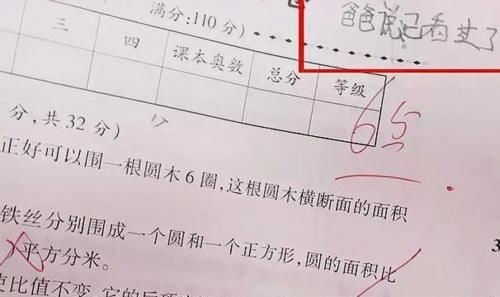 爸爸说已看了
满分:110 分)
三 四 课本奥数 总分 等级
65
分,共 32 分)
正好可以围一根圆木 6 圈,这根圆木横断面的面积
铁丝分别围成一个圆和一个正方形,圆的面积比
3
)平方分米。
比值不变,它的后项